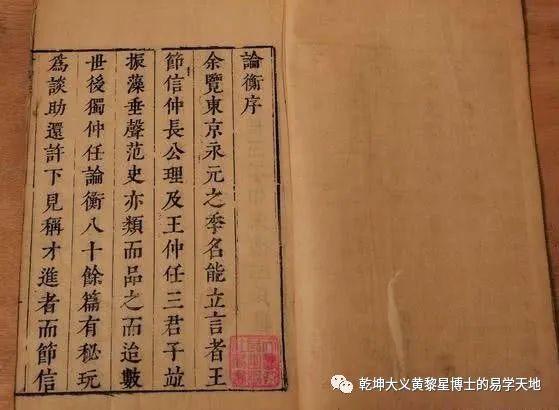 論衡序
余覽東京永元之季名能立言者王
節信仲長公理及王仲任三君子並
振藻垂聲范史亦類而品之而迨數
世後獨仲任論衡八十餘篇有秘玩
爲談助還許下見稱才進者而節信
乾坤大义黄黎星博士的易学天地